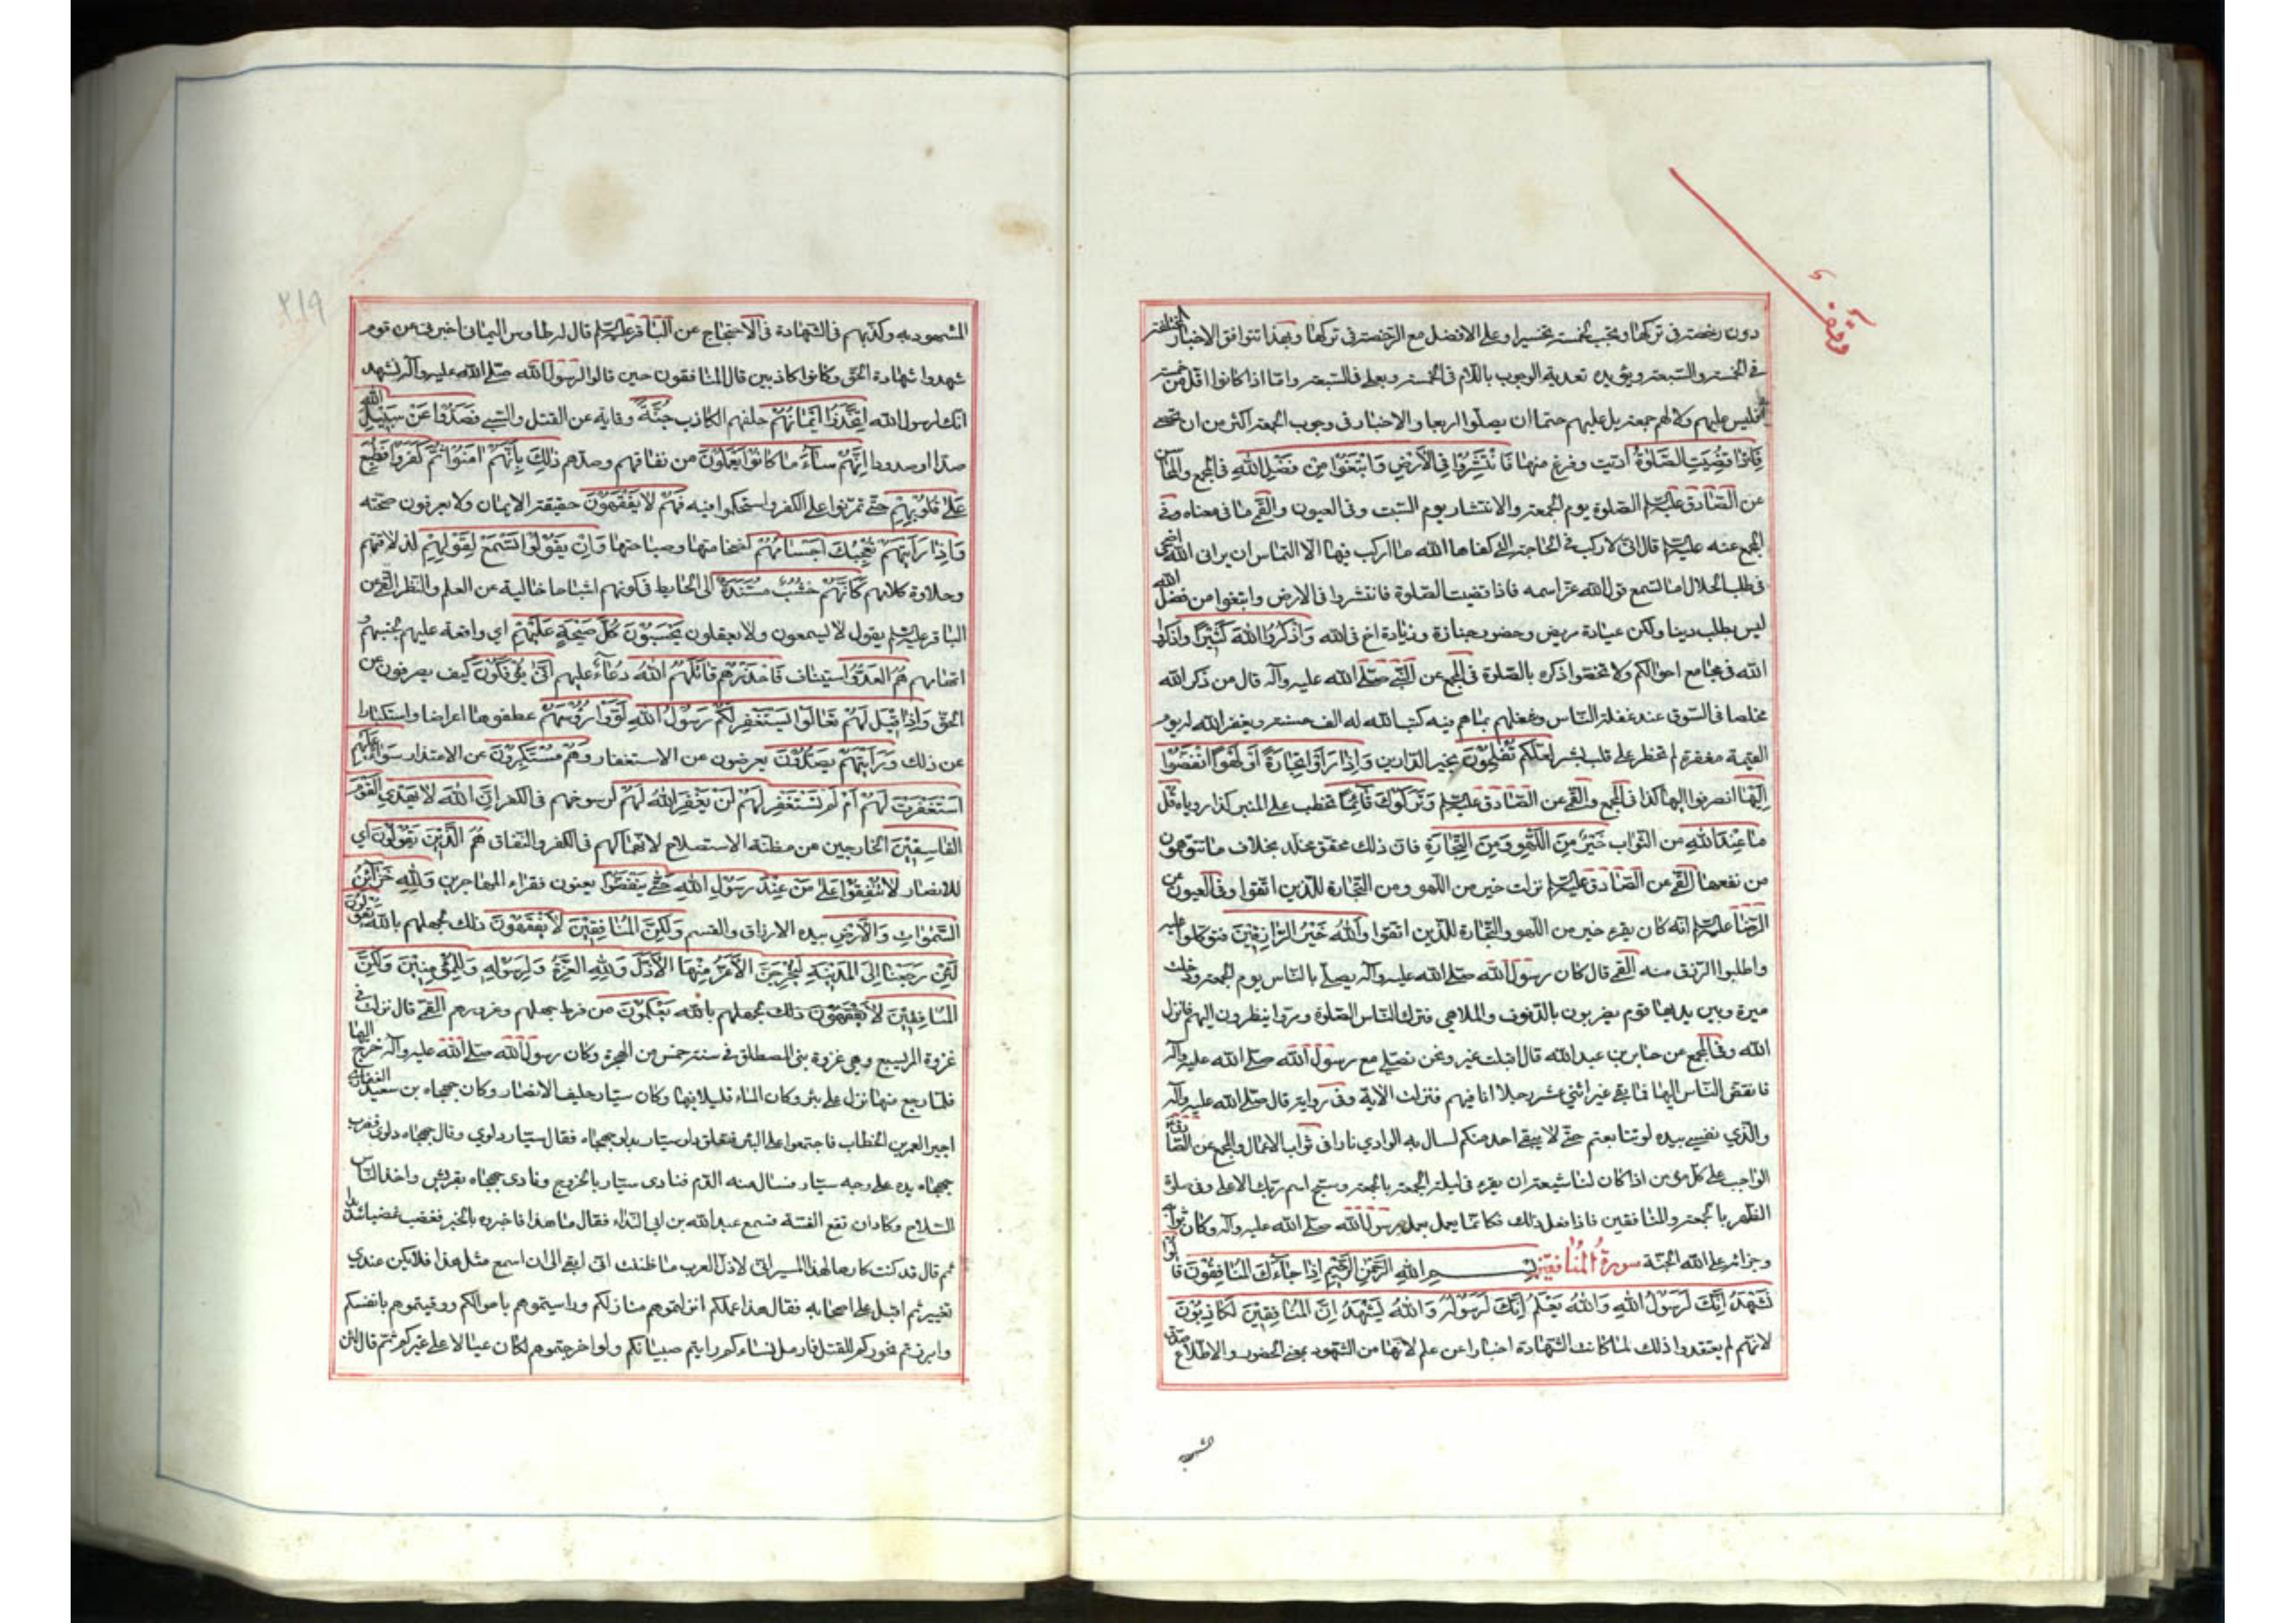 دون رخصة فى تركها وتجب لخمسة تخييرا وعلى الافضل مع الرخصة فى تركها وبهذا تتوافق الاخبار المختلفة
فى الخمسة والسبعة ويؤيده تعدية الوجوب باللام فى الخمسة وبعلى فى السبعة واما اذا كانوا اقل من خمسة
فليس عليهم ولا لهم جمعة بل عليهم حتما ان يصلوا اربعا والاخبار فى وجوب الجمعة اكثر من ان تحصى
فَاِذٰا قُضِيَتِ الصَّلٰوةُ اديت وفرغ منها فَانْتَشِرُوا فِى الْاَرْضِ وَابْتَغُوا مِنْ فَضْلِ اللّٰهِ فى المجمع والمحاسن
عن الصادق عليه السلام الصلوة يوم الجمعة والانتشار يوم السبت وفى العيون والقمى ما فى معناه وفى
المجمع عنه عليه السلام قال انى لاركب فى الحاجة التى كفاها الله ما اركب فيها الا التماس ان يرانى الله اضحى
فى طلب الحلال اما تسمع قول الله عز اسمه فاذا قضيت الصلوة فانتشروا فى الارض وابتغوا من فضل الله
ليس بطلب دينا ولكن عيادة مريض وحضور جنازة وزيادة اخ فى الله وَاذْكُرُوا اللّٰهَ كَثِيرًا واذكروا
الله فى مجامع احوالكم ولا تخصوا ذكره بالصلوة فى المجمع عن النبى صلى الله عليه وآله قال من ذكر الله
مخلصا فى السوق عند غفلة الناس وشغلهم بما هم فيه كتب الله له الف حسنة ويغفر الله له يوم
القيمة مغفرة لم تخطر على قلب بشر لَعَلَّكُمْ تُفْلِحُونَ بخير الدارين وَاِذٰا رَاَوْا تِجٰارَةً اَوْ لَهْوًا انْفَضُّوا
اِلَيْهٰا انصرفوا اليها كذا فى المجمع والقمى عن الصادق عليه السلام وَتَرَكُوكَ قٰائِمًا تخطب على المنبر كذا روياه قُلْ
مٰا عِنْدَ اللّٰهِ من الثواب خَيْرٌ مِنَ اللَّهْوِ وَمِنَ التِّجٰارَةِ فان ذلك محقق مخلد بخلاف ما تتوهمون
من نفعها القمى عن الصادق عليه السلام نزلت خير من اللهو ومن التجارة للذين اتقوا وفى العيون عن
الرضا عليه السلام انه كان يقرء خير من اللهو والتجارة للذين اتقوا وَاللّٰهُ خَيْرُ الرّٰازِقِينَ فتوكلوا عليه
واطلبوا الرزق منه القمى قال كان رسول الله صلى الله عليه وآله يصلى بالناس يوم الجمعة ودخلت
ميرة وبين يديها قوم يضربون بالدفوف والملاهى فترك الناس الصلوة ومروا ينظرون اليهم فانزل
الله وفى المجمع عن جابر بن عبد الله قال اقبلت عير ونحن نصلى مع رسول الله صلى الله عليه وآله
فانفض الناس اليها فما بقى غير اثنى عشر رجلا انا فيهم فنزلت الآية وفى رواية قال صلى الله عليه وآله
والذى نفسى بيده لو تتابعتم حتى لا يبقى احد منكم لسال به الوادى نارا فى ثواب الاعمال والمجمع عن الصادق
الواجب على كل مؤمن اذا كان لنا شيعة ان يقرء فى ليلة الجمعة بالجمعة وسبح اسم ربك الاعلى وفى صلوة
الظهر بالجمعة والمنافقين فاذا فعل ذلك فكانما يعمل بعمل رسول الله صلى الله عليه وآله وكان ثوابه
وجزائه على الله الجنة سورة المنافقين بسم الله الرحمن الرحيم اِذٰا جٰاءَكَ الْمُنٰافِقُونَ قٰالُوا
نَشْهَدُ اِنَّكَ لَرَسُولُ اللّٰهِ وَاللّٰهُ يَعْلَمُ اِنَّكَ لَرَسُولُهُ وَاللّٰهُ يَشْهَدُ اِنَّ الْمُنٰافِقِينَ لَكٰاذِبُونَ
لانهم لم يعتقدوا ذلك لما كانت الشهادة اخبارا عن علم لانها من الشهود بمعنى الحضور والاطلاع صدق
المشهود به وكذبهم فى الشهادة فى الاحتجاج عن الباقر عليه السلام قال له طاوس اليمانى اخبرنى عن قوم
شهدوا شهادة الحق وكانوا كاذبين قال المنافقون حين قالوا لرسول الله صلى الله عليه وآله نشهد
انك لرسول الله اِتَّخَذُوا اَيْمٰانَهُمْ حلفهم الكاذب جُنَّةً وقاية عن القتل والسبى فَصَدُّوا عَنْ سَبِيلِ اللّٰهِ
صدا او صدودا اِنَّهُمْ سٰاءَ مٰا كٰانُوا يَعْمَلُونَ من نفاقهم وصدهم ذٰلِكَ بِاَنَّهُمْ اٰمَنُوا ثُمَّ كَفَرُوا فَطُبِعَ
عَلٰى قُلُوبِهِمْ حتى تمرنوا على الكفر واستحكموا فيه فَهُمْ لٰا يَفْقَهُونَ حقيقة الايمان ولا يعرفون صحته
وَاِذٰا رَاَيْتَهُمْ تُعْجِبُكَ اَجْسٰامُهُمْ لضخامتها وصباحتها وَاِنْ يَقُولُوا تَسْمَعْ لِقَوْلِهِمْ لذلاقتهم
وحلاوة كلامهم كَاَنَّهُمْ خُشُبٌ مُسَنَّدَةٌ الى الحايط فى كونهم اشباحا خالية عن العلم والنظر القمى عن
الباقر عليه السلام يقول لا يسمعون ولا يعقلون يَحْسَبُونَ كُلَّ صَيْحَةٍ عَلَيْهِمْ اى واقعة عليهم لجبنهم و
اتهامهم هُمُ الْعَدُوُّ استيناف فَاحْذَرْهُمْ قٰاتَلَهُمُ اللّٰهُ دعاء عليهم اَنّٰى يُؤْفَكُونَ كيف يصرفون عن
الحق وَاِذٰا قِيلَ لَهُمْ تَعٰالَوْا يَسْتَغْفِرْ لَكُمْ رَسُولُ اللّٰهِ لَوَّوْا رُؤُسَهُمْ عطفوها اعراضا واستكبارا
عن ذلك وَرَاَيْتَهُمْ يَصُدُّونَ يعرضون عن الاستغفار وَهُمْ مُسْتَكْبِرُونَ عن الاعتذار سَوٰاءٌ عَلَيْهِمْ
اَسْتَغْفَرْتَ لَهُمْ اَمْ لَمْ تَسْتَغْفِرْ لَهُمْ لَنْ يَغْفِرَ اللّٰهُ لَهُمْ لرسوخهم فى الكفر اِنَّ اللّٰهَ لٰا يَهْدِى الْقَوْمَ
الْفٰاسِقِينَ الخارجين من مظنة الاستصلاح لانهماكهم فى الكفر والنفاق هُمُ الَّذِينَ يَقُولُونَ اى
للانصار لٰا تُنْفِقُوا عَلٰى مَنْ عِنْدَ رَسُولِ اللّٰهِ حَتّٰى يَنْفَضُّوا يعنون فقراء المهاجرين وَلِلّٰهِ خَزٰائِنُ
السَّمٰوٰاتِ وَالْاَرْضِ بيده الارزاق والقسم وَلٰكِنَّ الْمُنٰافِقِينَ لٰا يَفْقَهُونَ ذلك لجهلهم بالله يَقُولُونَ
لَئِنْ رَجَعْنٰا اِلَى الْمَدِينَةِ لَيُخْرِجَنَّ الْاَعَزُّ مِنْهَا الْاَذَلَّ وَلِلّٰهِ الْعِزَّةُ وَلِرَسُولِهِ وَلِلْمُؤْمِنِينَ وَلٰكِنَّ
الْمُنٰافِقِينَ لٰا يَفْقَهُونَ ذلك لجهلهم بالله يَعْلَمُونَ من فرط جهلهم وغرورهم القمى قال نزلت فى
غزوة المريسيع وهى غزوة بنى المصطلق فى سنة خمس من الهجرة وكان رسول الله صلى الله عليه وآله خرج اليها
فلما رجع منها نزل على بئر وكان الماء قليلا فيها وكان سيار حليف الانصار وكان جهجاه بن سعيد الغفارى
اجيرا لعمر بن الخطاب فاجتمعوا على البئر فتعلق دلو سيار بدلو جهجاه فقال سيار دلوي وقال جهجاه دلوى فضرب
جهجاه يده على وجه سيار فسال منه الدم فنادى سيار بالخزرج ونادى جهجاه بقريش واخذ الناس
السلاح وكاد ان تقع الفتنة فسمع عبد الله بن ابى النداء فقال ما هذا فاخبروه بالخبر فغضب غضبا شديدا
ثم قال قد كنت كارها لهذا المسير انى لاذل العرب ما ظننت انى ابقى الى ان اسمع مثل هذا فلا يكن عندي
تغيير ثم اقبل على اصحابه فقال هذا عملكم انزلتموهم منازلكم وواسيتموهم باموالكم ووقيتموهم بانفسكم
وابرزتم نحوركم للقتل فارمل نساءكم وايتم صبيانكم ولو اخرجتموهم لكانوا عيالا على غيركم ثم قال لئن
٢١٩